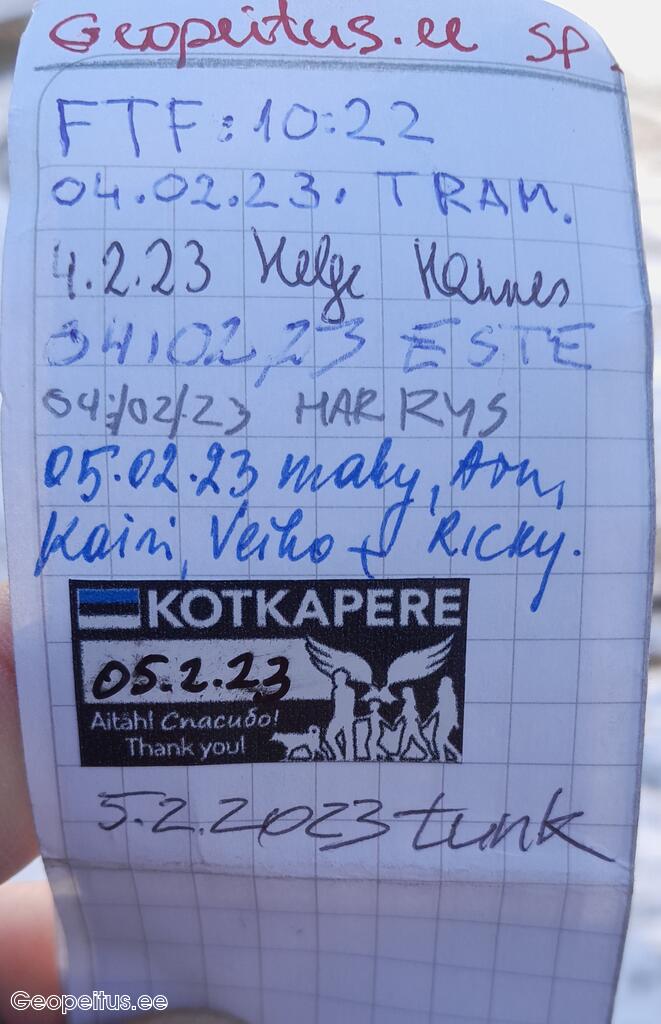 Geopeitus.ee SP
FTF: 10:22
04.02.23. TRAM.
4.2.23 Helge Hannes
04.02,23 ESTE
04/02/23 HARRYS
05.02.23 maky, Aon,
Kairi, Veiko + Ricky.
KOTKAPERE
05.2.23
Aitäh! Спасибо!
Thank you!
5.2.2023 tunk
Geopeitus.ee